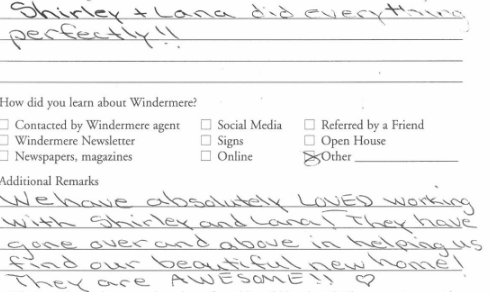 Shirley + Lana did everything
perfectly!!
How did you learn about Windermere?
☐ Contacted by Windermere agent ☐ Social Media ☐ Referred by a Friend
☐ Windermere Newsletter ☐ Signs ☐ Open House
☐ Newspapers, magazines ☐ Online ☒ Other
Additional Remarks
We have absolutely LOVED working
with Shirley and Lana! They have
gone over and above in helping us
find our beautiful new home!
They are AWESOME!! ♡